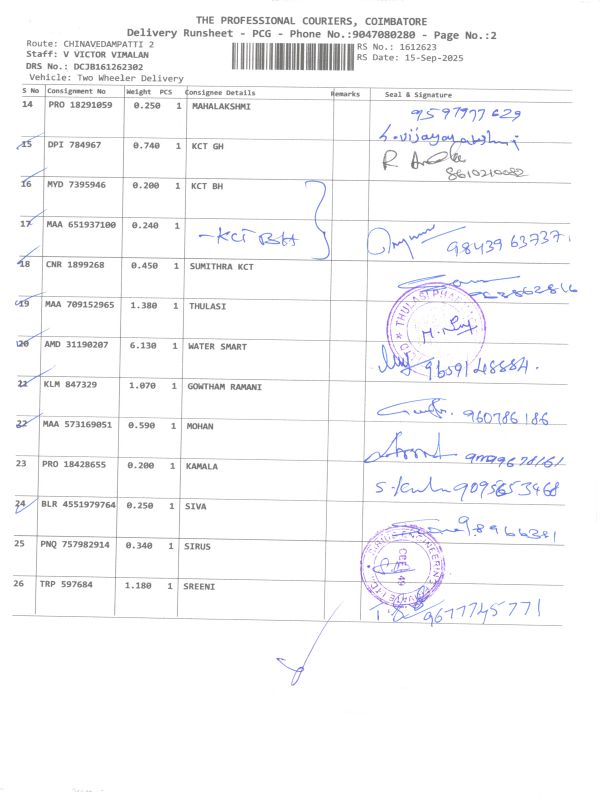 THE PROFESSIONAL COURIERS, COIMBATORE
Delivery Runsheet - PCG - Phone No.:9047080280 - Page No.:2
Route: CHINAVEDAMPATTI 2
RS No.: 1612623
Staff: V VICTOR VIMALAN
RS Date: 15-Sep-2025
DRS No.: DCJB161262302
Vehicle: Two Wheeler Delivery
S No Consignment No Weight PCS Consignee Details Remarks Seal & Signature
14 PRO 18291059 0.250 1 MAHALAKSHMI
9597977629
S.vijayalakshmi
15 DPI 784967 0.740 1 KCT GH
8610210082
16 MYD 7395946 0.200 1 KCT BH
17 MAA 651937100 0.240 1 - KCT BH
9843963737
18 CNR 1899268 0.450 1 SUMITHRA KCT
19 MAA 709152965 1.380 1 THULASI
20 AMD 31190207 6.130 1 WATER SMART
9659148884.
21 KLM 847329 1.070 1 GOWTHAM RAMANI
960786186
22 MAA 573169051 0.590 1 MOHAN
23 PRO 18428655 0.200 1 KAMALA
9095653468
24 BLR 4551979764 0.250 1 SIVA
25 PNQ 757982914 0.340 1 SIRUS
26 TRP 597684 1.180 1 SREENI
9677745771